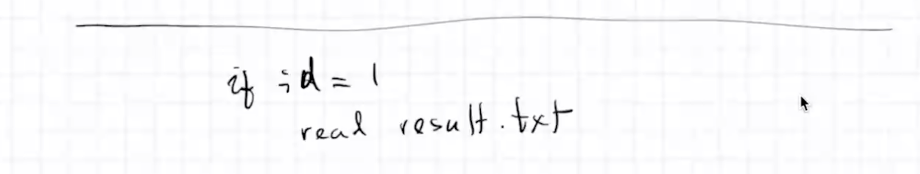 if id = 1
real result.txt